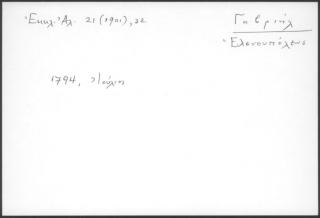 Ἐκκλ. Ἀλ. 21 (1901), 22
Γαβριήλ
Ἑλενουπόλεως
1794, Ἰούλιος